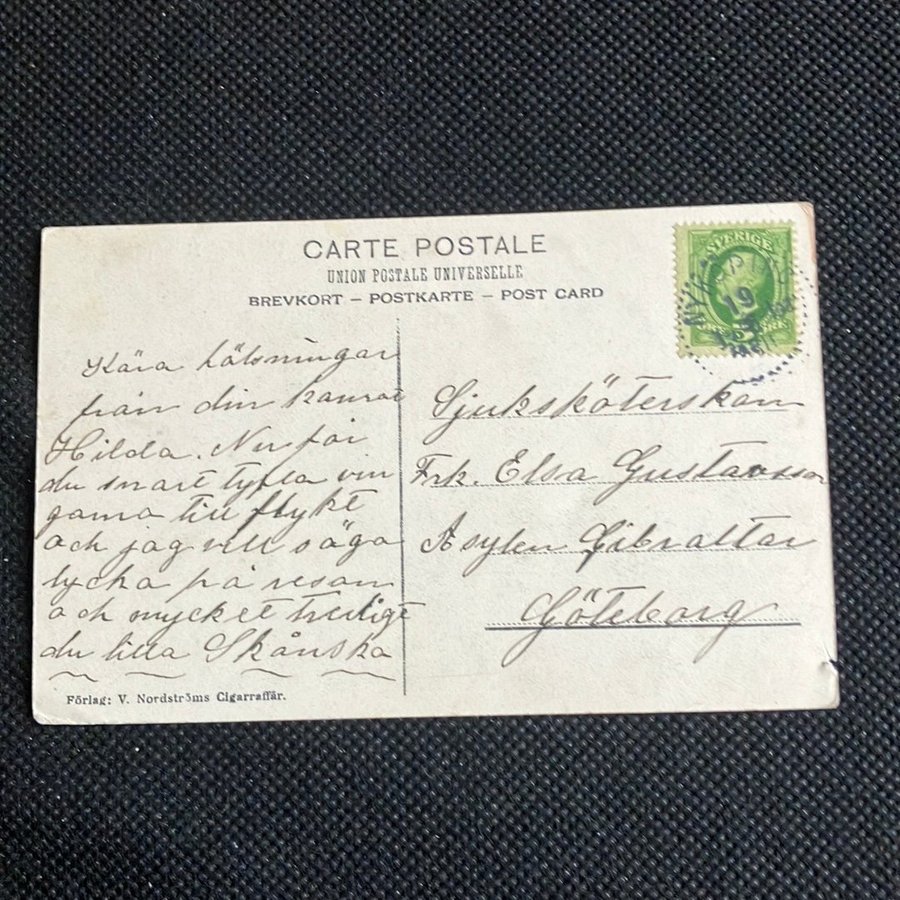 CARTE POSTALE
UNION POSTALE UNIVERSELLE
BREVKORT – POSTKARTE – POST CARD
SVERIGE
19
Kära hälsningar
från din kamrat
Hilda. Nu får
du snart lyfta vin
garna till flykt
och jag vill säga
lycka på resan
och mycket trefligt
du lilla Skånska
Sjuksköterskan
Frk. Elsa Gustavsson
Asylen Gibraltar
Göteborg
Förlag: V. Nordströms Cigarraffär.